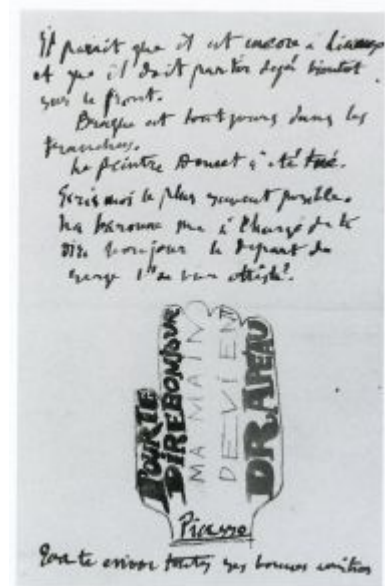 Il parait que il est encore a
et que il doit partir deja bientot
sur le front.
Braque est toutjours dans les
tranchées.
Le peintre Doucet a été tué.
Ecris moi le plus souvent posible.
La baronne me a chargé de te
dire bonjour le depart de
Serge l'
POUR TE
DIRE BONJOUR
MA MAIN
DEVIENT
DRAPEAU
Picasso
Eva te envoi toutes ses bonnes amities